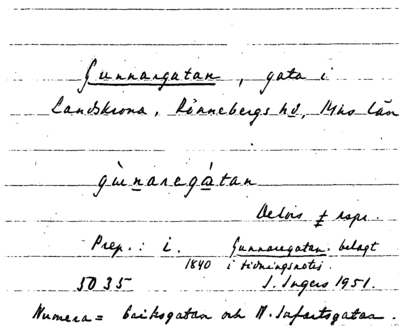 Gunnargatan, gata i
Landskrona, Rönnebergs hd, Mhs län
gùnaregátan
Delvis ‡ rspr.
Prep.: i. Gunnaregatan. belagt
1840 i tidningsnotis.
5035 I. Ingers 1951.
Numera = Eriksgatan och N. Infartsgatan.